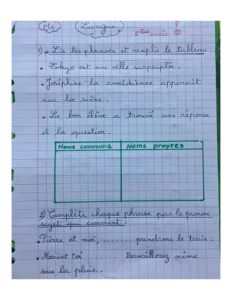 Ma Langue
5ème année
1) - Lis les phrases et remplis le tableau
- Tokyo est une ville surpeuplée.
- Joséphine la comédienne apparaît
sur la scène.
- Le bon élève a trouvé une réponse
à la question.
Noms communs Noms propres
2) Complète chaque phrase par le pronom
sujet qui convient :
- Pierre et moi, ......... prendrons le train.
- Marie et toi ......... travaillerez même
sous la pluie.